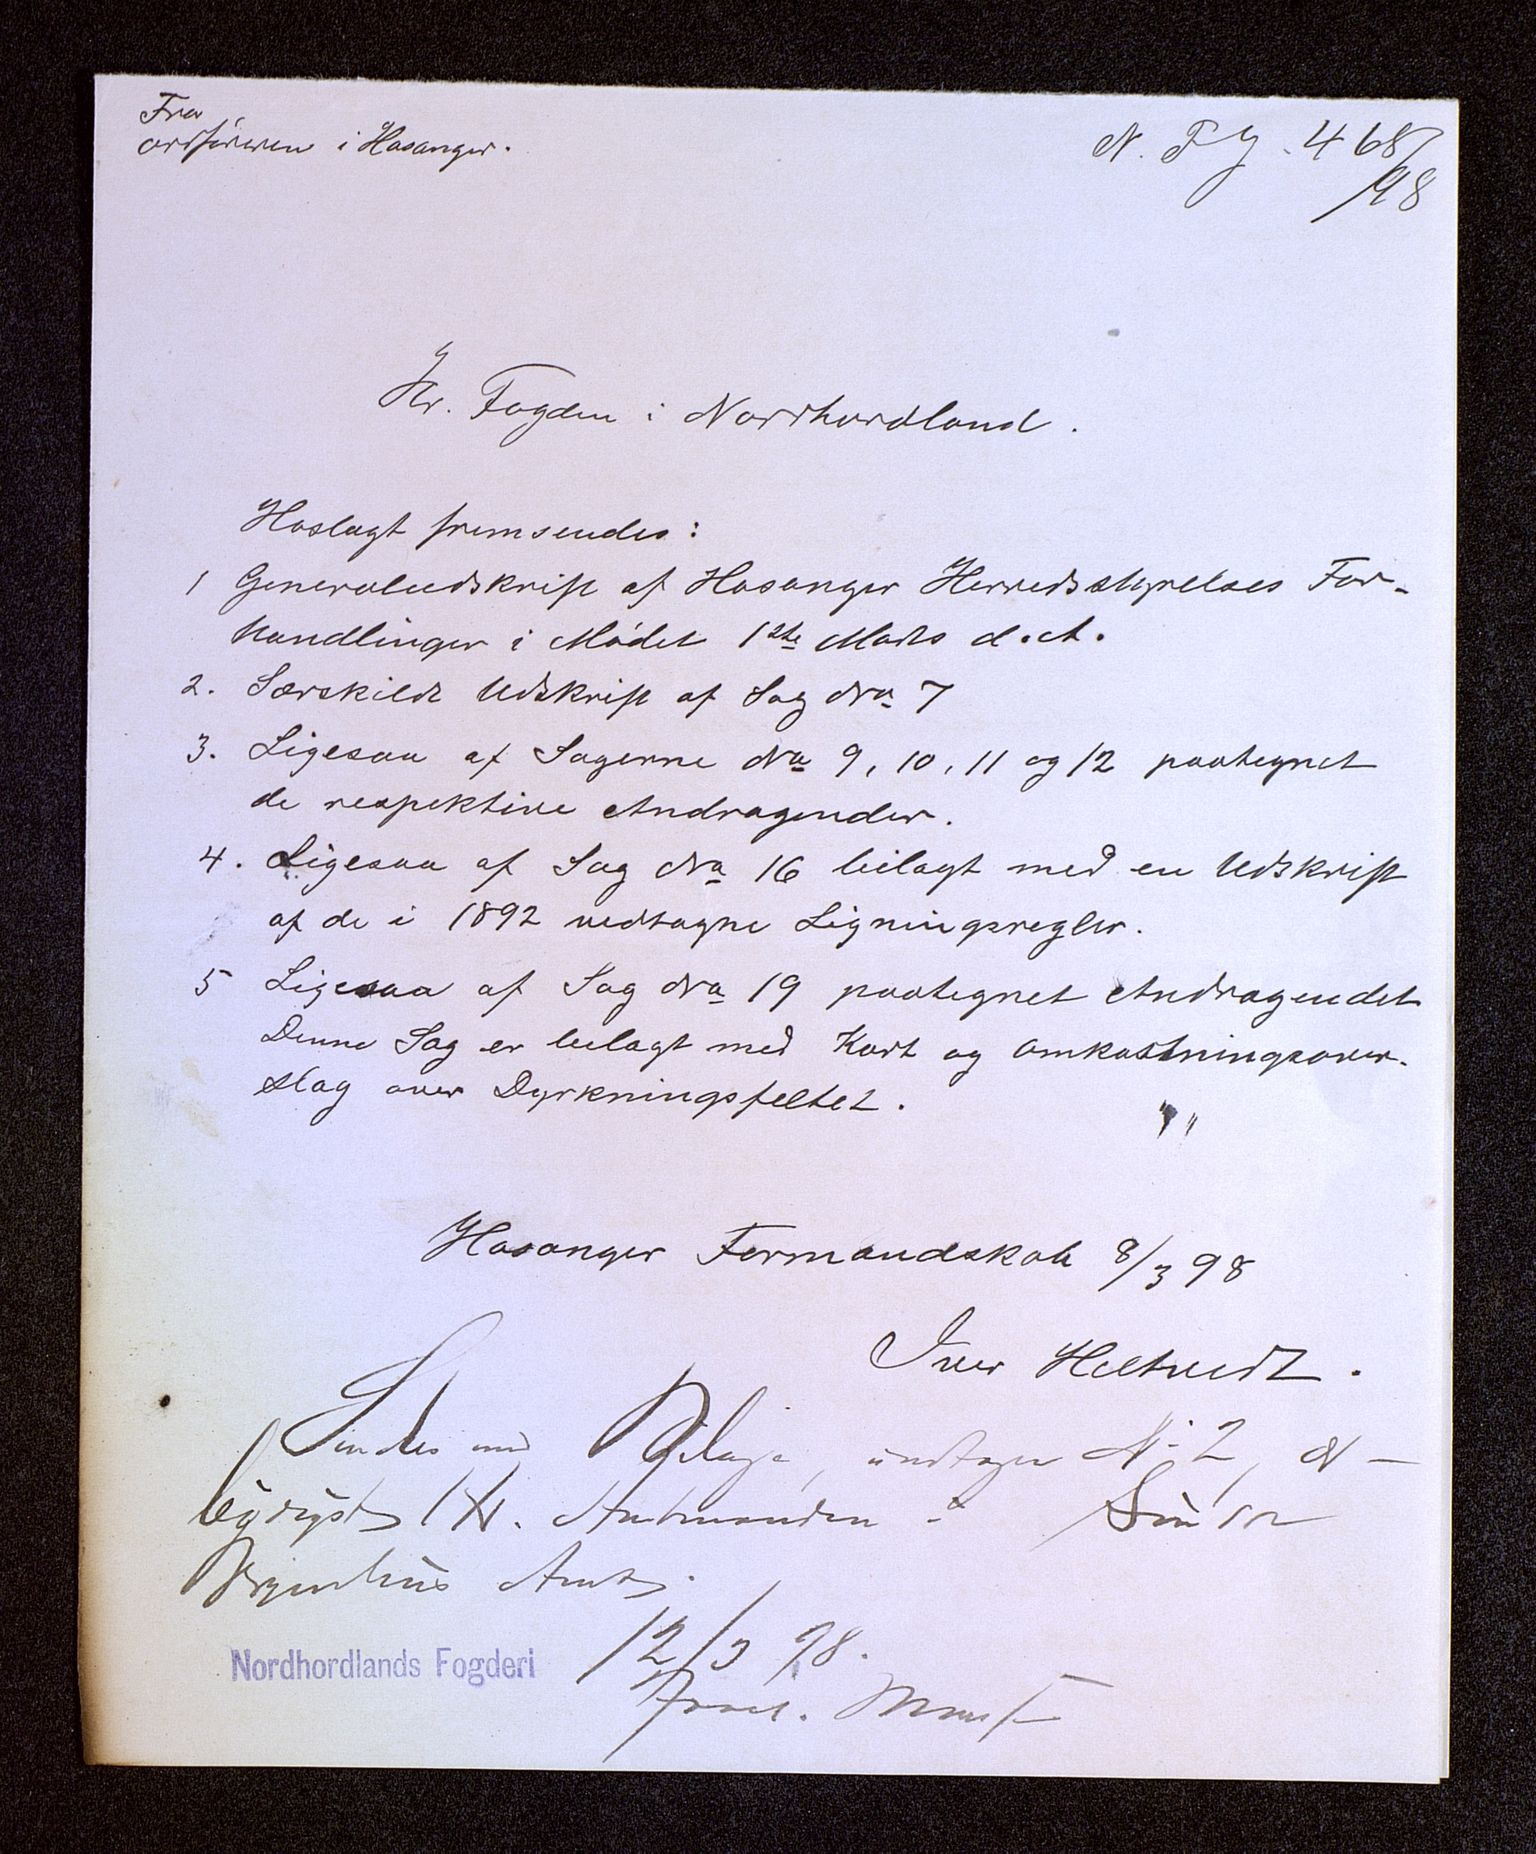 Fra
ordføreren i Hosanger.
N. F. J. 468/98
Hr. Fogden i Nordhordland.
Hoslagt fremsendes:
1 Generaludskrift af Hosanger Herredsstyrelses For-
handlinger i Mødet 1ste Marts d. A.
2. Særskildt Udskrift af Sag No 7
3. Ligesaa af Sagerne No 9, 10, 11 og 12 paategnet
de respektive Andragender.
4. Ligesaa af Sag No 16 bilagt med en Udskrift
af de i 1892 vedtagne Ligningsregler.
5 Ligesaa af Sag No 19 paategnet Andragendet
Denne Sag er bilagt med Kart og Omkostningsover-
slag over Dyrkningsfeltet.
Hosanger Formandskab 8/3 98
Iver Heltvedt.
Sendes med Bilage, undtagen N: 2,
ærbødigst Hr. Amtmanden i Søndre
Bergenhus Amt.
12/3 98.
Nordhordlands Fogderi